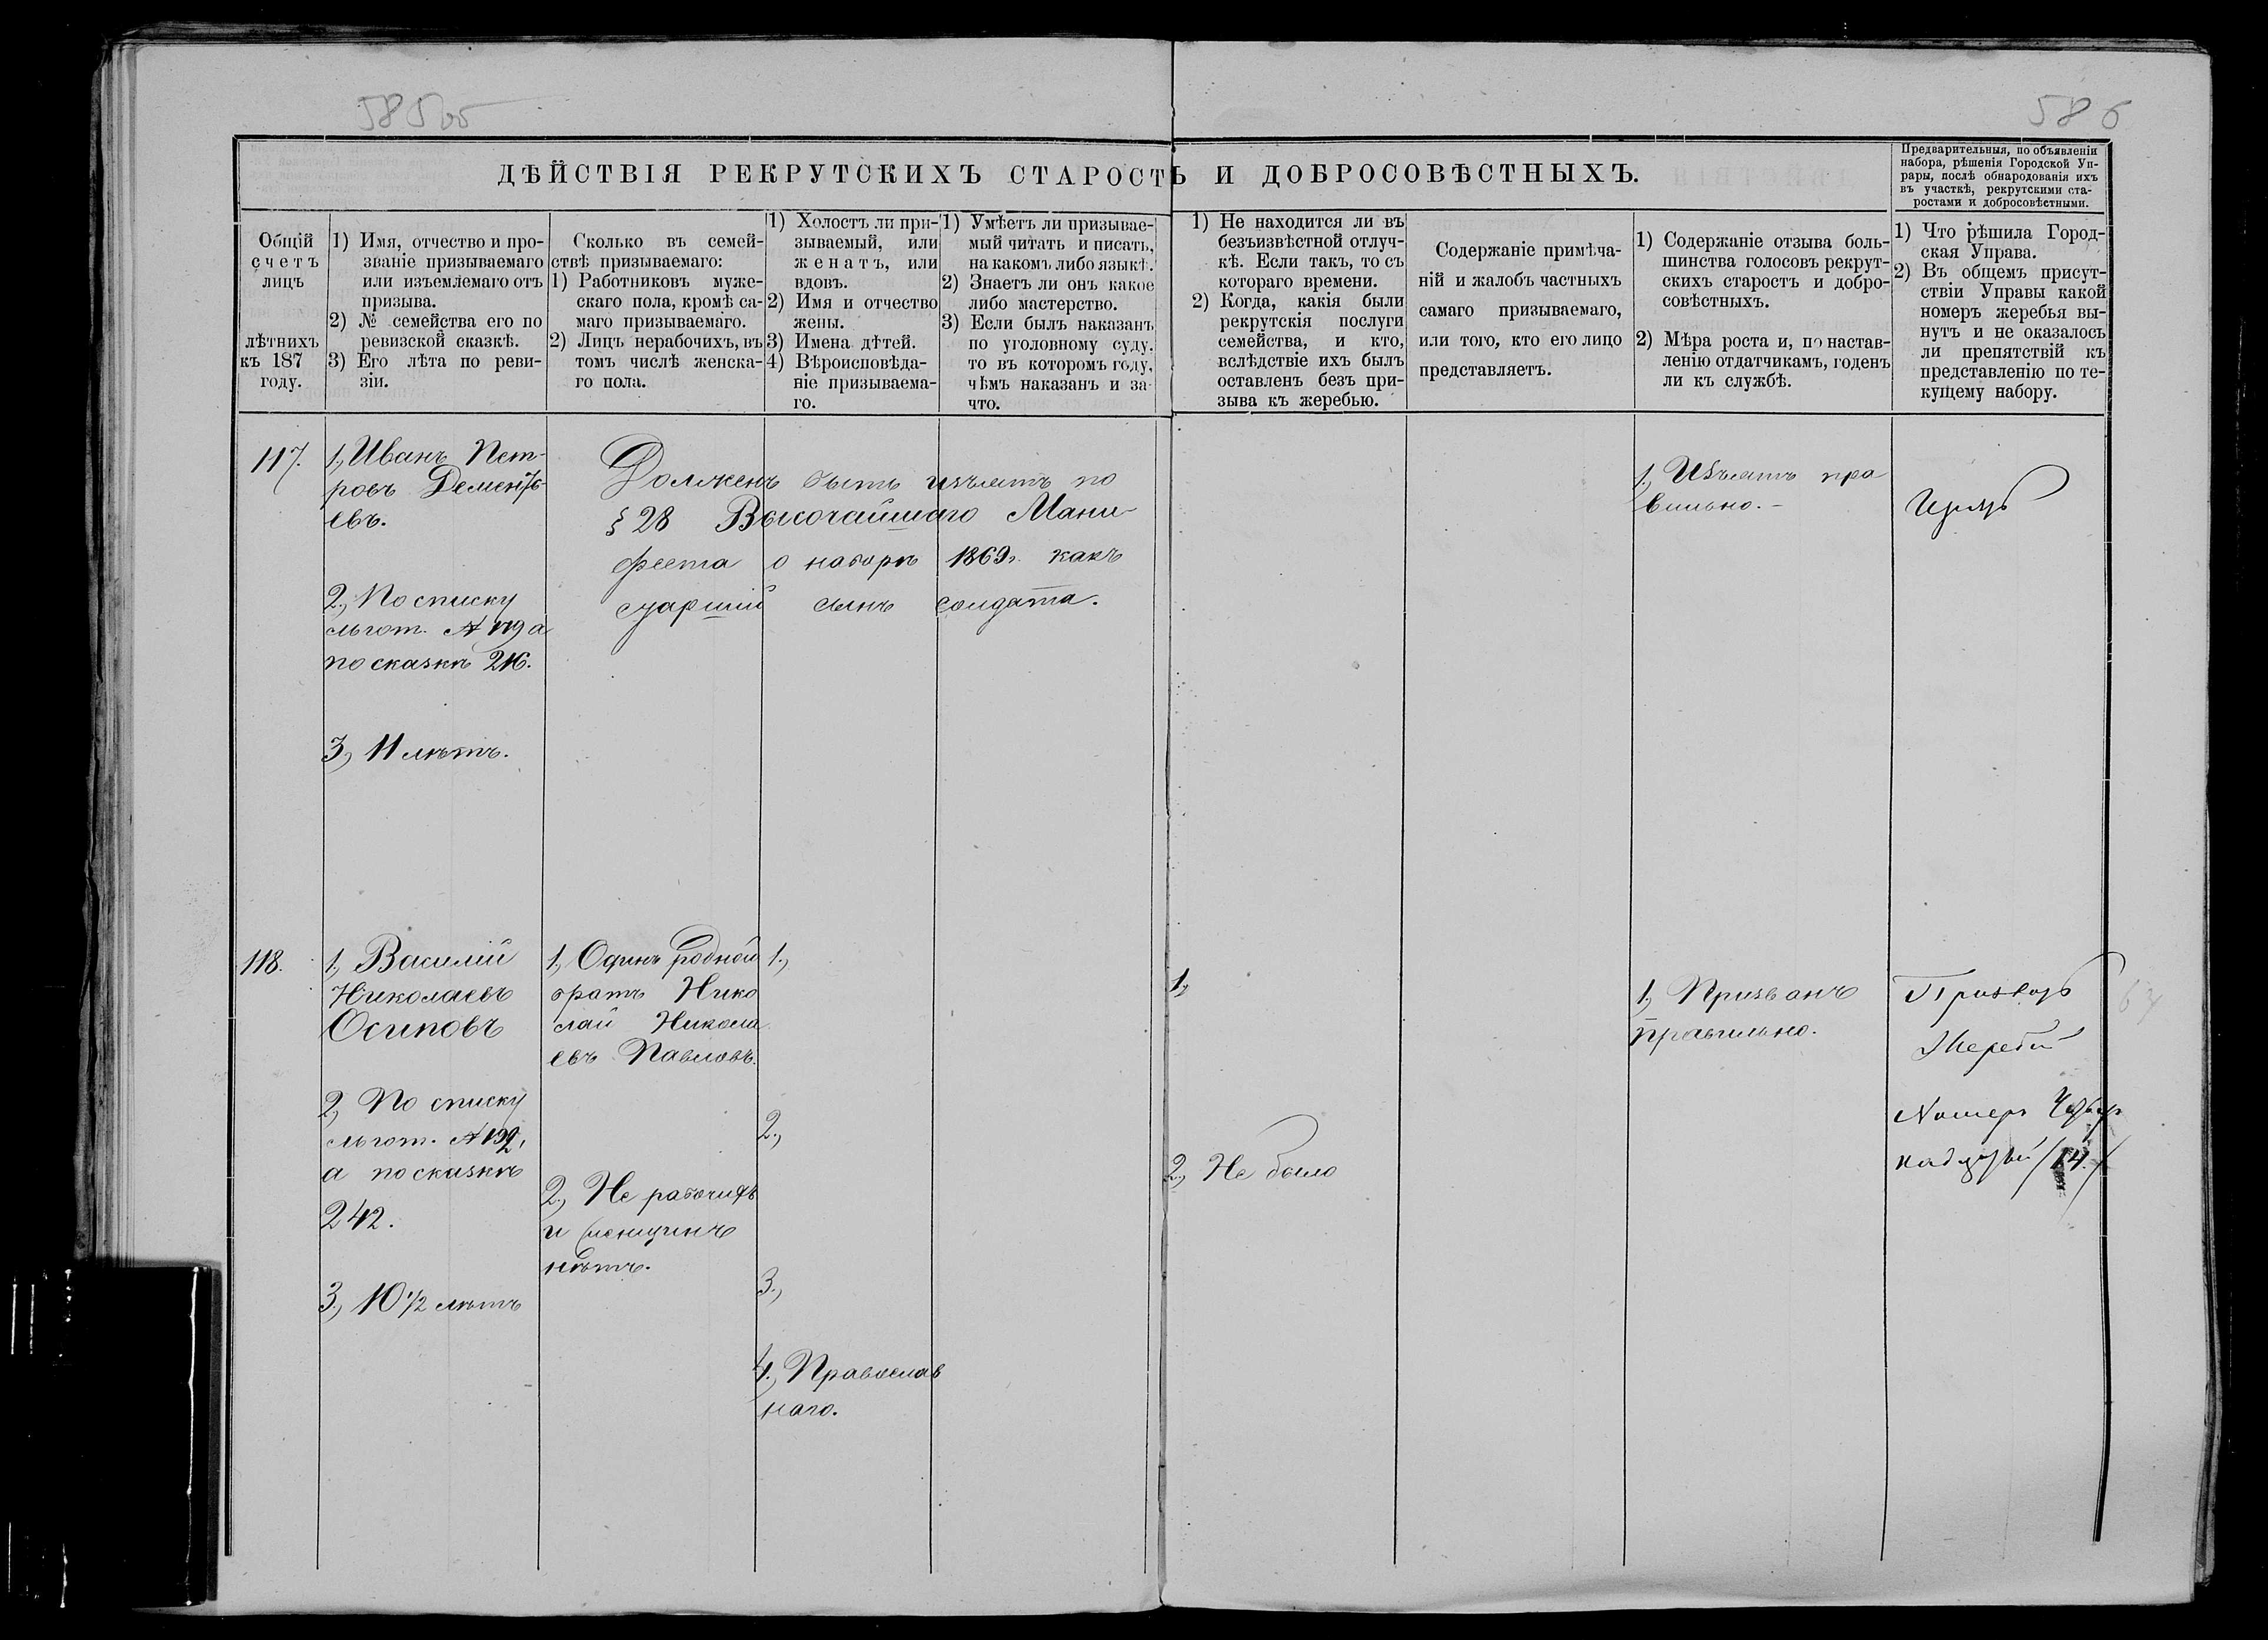 585об
586
ДѢЙСТВІЯ РЕКРУТСКИХЪ СТАРОСТЪ И ДОБРОСОВѢСТНЫХЪ.
Предварительныя, по объявленіи
набора, рѣшенія Городской Уп-
рары, послѣ обнародованія ихъ
въ участкѣ, рекрутскими ста-
ростами и добросовѣстными.
Общій
счетъ
лицъ
лѣтнихъ
къ 187
году.
1) Имя, отчество и про-
званіе призываемаго
или изъемлемаго отъ
призыва.
2) № семейства его по
ревизской сказкѣ.
3) Его лѣта по реви-
зіи.
Сколько въ семей-
ствѣ призываемаго:
1) Работниковъ муже-
скаго пола, кромѣ са-
маго призываемаго.
2) Лицъ нерабочихъ, въ
томъ числѣ женска-
го пола.
1) Холостъ ли при-
зываемый, или
женатъ, или
вдовъ.
2) Имя и отчество
жены.
3) Имена дѣтей.
4) Вѣроисповѣда-
ніе призываема-
го.
1) Умѣетъ ли призывае-
мый читать и писать,
на какомъ либо языкѣ.
2) Знаетъ ли онъ какое
либо мастерство.
3) Если былъ наказанъ
по уголовному суду,
то въ которомъ году,
чѣмъ наказанъ и за
что.
1) Не находится ли въ
безъизвѣстной отлуч-
кѣ. Если такъ, то съ
котораго времени.
2) Когда, какія были
рекрутскія послуги
семейства, и кто,
вслѣдствіе ихъ былъ
оставленъ безъ при-
зыва къ жеребью.
Содержаніе примѣча-
ній и жалобъ частныхъ
самаго призываемаго,
или того, кто его лицо
представляетъ.
1) Содержаніе отзыва боль-
шинства голосовъ рекрут-
скихъ старостъ и добро-
совѣстныхъ.
2) Мѣра роста и, по настав-
ленію отдатчикамъ, годенъ
ли къ службѣ.
1) Что рѣшила Город-
ская Управа.
2) Въ общемъ присут-
ствіи Управы какой
номеръ жеребья вы-
нутъ и не оказалось
ли препятствій къ
представленію по те-
кущему набору.
117.
1., Иванъ Пет-
ровъ Дементь-
евъ.
2., По списку
льгот. № 119 а
по сказкѣ 216.
3., 11 лѣтъ.
Долженъ быть изъятъ по
§ 28 Высочайшаго Мани-
феста о наборѣ 1869 г. какъ
старшій сынъ солдата.
1., Изъятъ пра
вильно.-
118.
1., Василій
Николаевъ
Осиповъ
2., По списку
льгот. № 132,
а по сказкѣ
242.
3., 10 1/2 лѣтъ
1., Одинъ родной
братъ Нико
лай Никола
евъ Павловъ.
2., Не рабочихъ
и женщинъ
нѣтъ.
1.,
2.,
3.,
4., Православ
наго.
1.,
2., Не было
1., Призванъ
правильно.
Жеребій
Номеръ Четыр
надцатый /14./